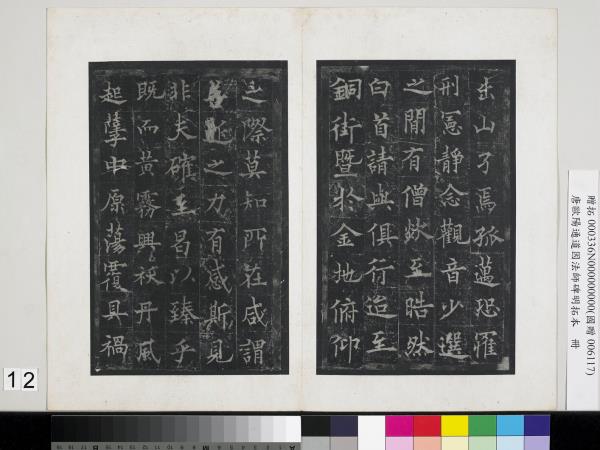 出山孑焉孤邁恐罹
刑憲靜念觀音少選
之間有僧欻至皓然
白首請與俱行迨至
銅街暨於金地俯仰
之際莫知所在咸謂
善逝之力有感斯見
非夫確至曷以臻乎
既而黃霧興祅丹風
起孽中原蕩覆具禍
贈拓 000336N000000000(國贈 006117)
唐歐陽通道因法師碑明拓本 冊
12